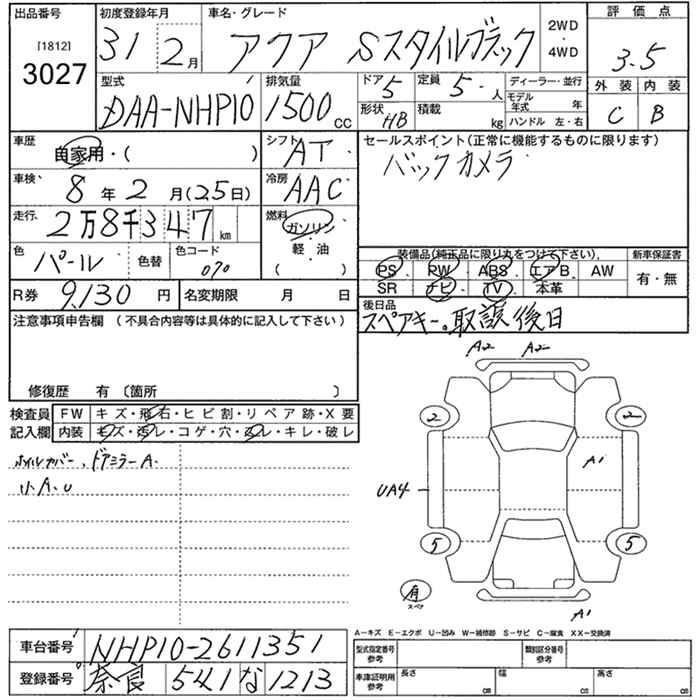 出品番号 初度登録年月 車名・グレード 評価点
[1812] 31 2月 アクア Sスタイルブラック 2WD・4WD 3.5
3027
型式 排気量 ドア 5 定員 5人 ディーラー・並行 外装 内装
DAA-NHP10 1500cc 形状 HB 積載 kg モデル年式 年 C B
ハンドル 左・右
車歴 自家用・( ) シフト AT セールスポイント(正常に機能するものに限ります)
車検 8年 2月(25日) 冷房 AAC バックカメラ
走行 2万8千347km 燃料 ガソリン・軽・油・( )
色 パール 色替 色コード 070 装備品(純正品に限り丸をつけて下さい) 新車保証書
PS PW ABS エアB AW 有・無
SR ナビ TV 本革
R券 9,130円 名変期限 月 日 後日品
スペアキー。取説後日
注意事項申告欄 (不具合内容等は具体的に記入して下さい)
修復歴 有 〔箇所 〕
検査員記入欄 FW キズ・飛石・ヒビ割・リペア跡・X要
内装 キズ・汚レ・コゲ・穴・凹レ・キレ・破レ
ホイルカバー、ドアミラーA.
小A.U
A2 A2
2 2
A1
UA4
5 5
有
スペア
A1
A-キズ E-エクボ U-凹み W-補修跡 S-サビ C-腐食 XX-交換済
車台番号 NHP10-2611351 型式指定番号 参考 類別区分番号 参考
登録番号 奈良 541 な 1213 車庫証明用 参考 長さ cm 幅 cm 高さ cm